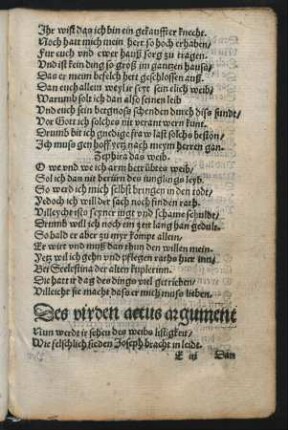 Ihr wist dan ich bin ein gekauffter knecht.
Noch hatt mich mein herr so hoch erhaben/
Fur euch vnd ewer hauß sorg zu tragen.
Vnd ist kein ding so groß im gantzen hauß/
Das er meim befelch hett geschlossen auß.
Dan euch allein weyl ir seyt sein elich weib/
Warumb solt ich dan also seinen leib
Vnd euch sein bergnoß schenden durch dise sünde/
Vor Gott ich solches nit verantworten kunt.
Drumb bit ich gnedige fraw last solchs beston/
Ich muß gen hoff yetz nach meym herren gan.
Zephira das weib.
O we vnd we ich arm betrübtes weib/
Sol ich dan nit berüren des iunglings leyb.
So werd ich mich selbst bringen in den todt/
Yedoch ich will der sach noch finden rath.
Villeycht ists seyner iugt vnd schame schuldt/
Drumb will ich noch ein zeit lang han gedult.
So bald er aber zu myr kompt allein/
Er wirt vnd muß dan thun den willen mein.
Yetz wil ich gehn vnd pflegen raths hier inn/
Bei Seelestina der alten kuplerinn.
Die hatt d dag des dings viel getrieben/
Villeicht sie macht das er mich muß lieben.
Des virden actus argument
Nun werdt ir sehen des weibs listigkeit/
Wie felschlich sie den Joseph bracht in leidt.
E iij Dan